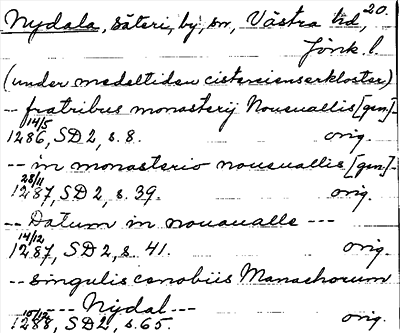 Nydala, säteri, by, sn, Västra hd, 20.
Jönk. l.
(under medeltiden cistercienserkloster)
-- fratribus monasterij Noueuallis [gen] -
14/5
1286, SD 2, s. 8. orig.
-- in monasterio noueuallis [gen] -
28/11
1287, SD 2, s. 39. orig.
-- Datum in nouaualle ---
14/12
1287, SD 2, s. 41. orig.
-- singulis cenobiis Monachorum
--- Nydal ---
10/12
1288, SD 2, s. 65. orig.